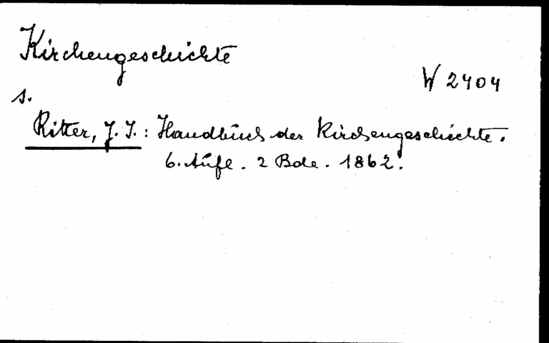 Kirchengeschichte
W 2404
s.
Ritter, J. I.: Handbuch der Kirchengeschichte.
6. Aufl. 2 Bde. 1862.